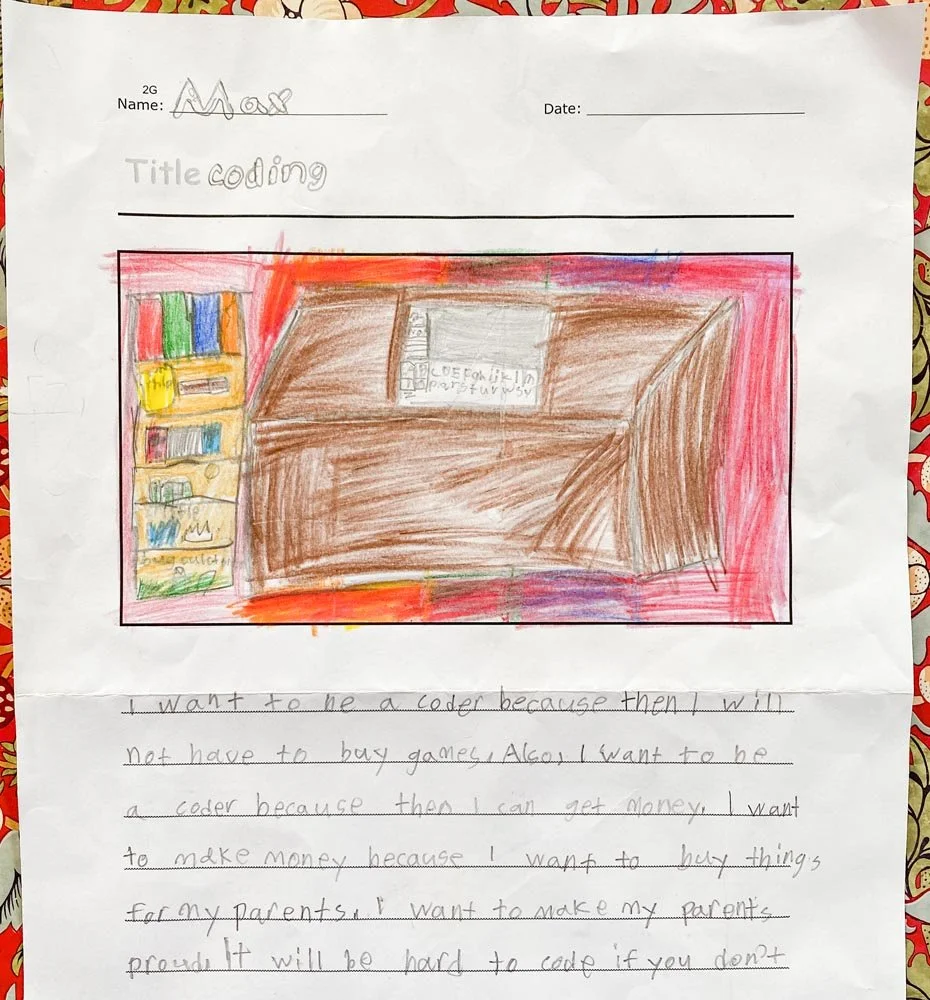 2G
Name: Max
Date:
Title coding
I want to be a coder because then I will
not have to buy games. Also, I want to be
a coder because then I can get money. I want
to make money because I want to buy things
for my parents. I want to make my parents
proud. It will be hard to code if you don't